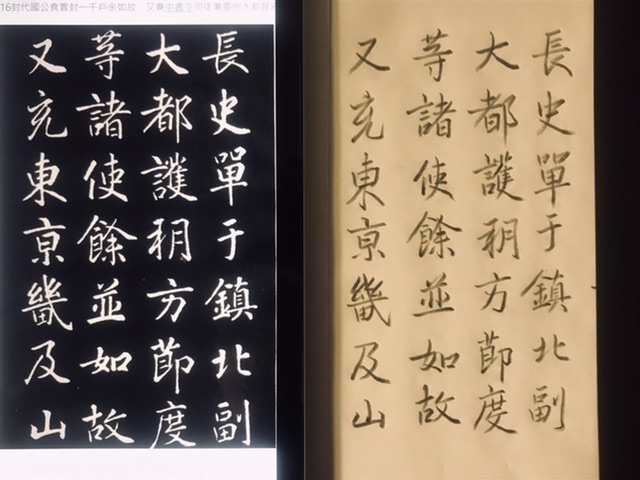 16封代國公食實封一千戶余如故、又兼中書令
長史單于鎮北副
大都護朔方節度
等諸使餘並如故
又充東京畿及山
長史單于鎮北副
大都護朔方節度
等諸使餘並如故
又充東京畿及山